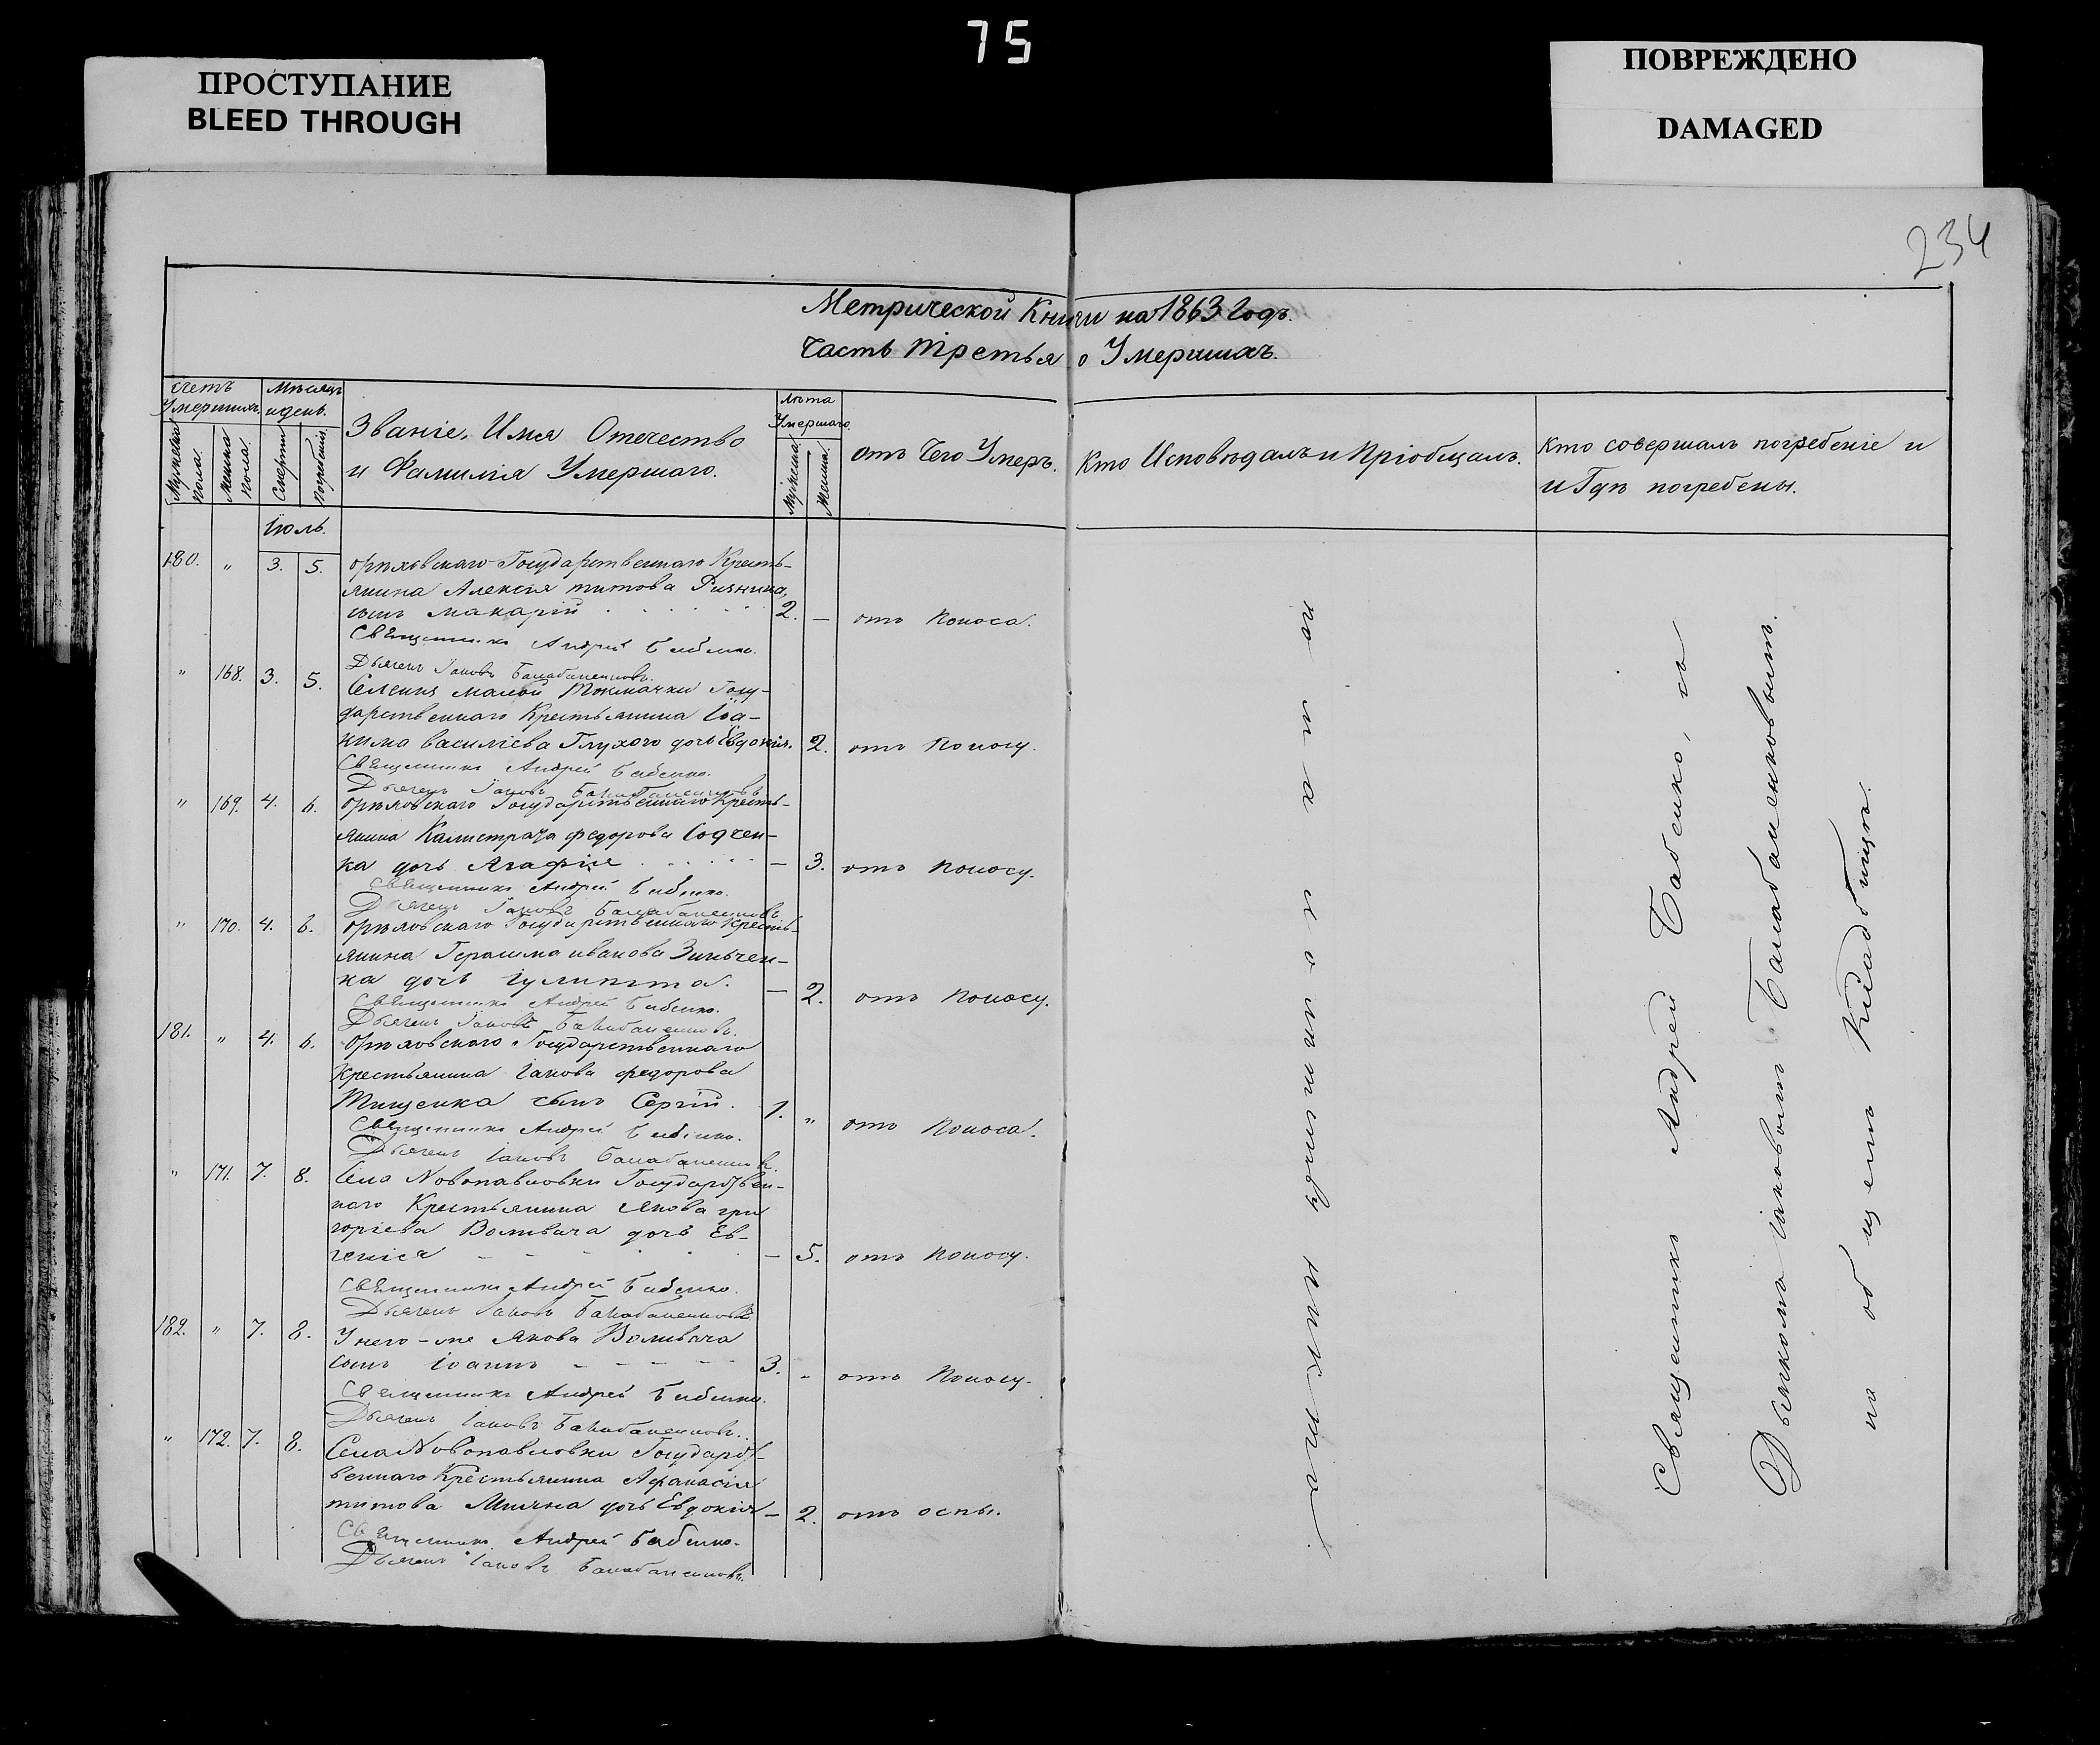 75
ПРОСТУПАНИЕ
BLEED THROUGH
ПОВРЕЖДЕНО
DAMAGED
234
Метрической Книги на 1863 Годъ.
Часть Третья о Умершихъ.
счетъ Умершихъ.
Мужеска пола.
Женска пола.
Мѣсяцъ и день.
Смерти
Погребенія.
Званіе, Имя Отечество
и Фамилія Умершаго.
Лѣта Умершаго.
Мужеска.
Женска.
отъ Чего Умеръ.
Кто Исповѣдалъ и Пріобщалъ.
Кто совершалъ погребеніе и
и Гдѣ погребены.
Іюль.
180. „ 3. 5. орѣховскаго Государственнаго Кресть-
янина Алексія титова
сынъ макарій 2. — отъ поноса.
Священникъ Андрей Бабенко.
Дьячекъ Іаковъ Балабаненковъ.
„ 168. 3. 5. Селенія малой Токмачки Госу-
дарственнаго Крестьянина Іоа-
кима василіева Глухого дочь Евдокія. 2. отъ поносу.
Священникъ Андрей Бабенко.
Дьячекъ Іаковъ Балабаненковъ
„ 169. 4. 6. орѣховскаго Государственнаго Кресть-
янина Калистрата федорова
ка дочь Агафія — 3. отъ поносу.
Священникъ Андрей Бабенко.
Дьячекъ Іаковъ Балабаненковъ.
„ 170. 4. 6. орѣховскаго Государственнаго Кресть-
янина Герасима иванова Зинчен-
ка дочь іулитта. — 2. отъ поносу.
Священникъ Андрей Бабенко.
Дьячекъ Іаковъ Балабаненковъ.
181. „ 4. 6. Орѣховскаго Государственнаго
Крестьянина Іакова федорова
Тищенка сынъ Сергій. 1. „ отъ поноса.
Священникъ Андрей Бабенко.
Дьячекъ Іаковъ Балабаненковъ.
„ 171. 7. 8. Села Новопавловки Государствен-
наго Крестьянина Якова гри
горіева Воливача дочь Ев-
генія — 5. отъ поносу.
Священникъ Андрей Бабенко.
Дьячекъ Іаковъ Балабаненковъ
182. „ 7. 8. У него-же Якова Воливача
сынъ Іоаннъ 3. „ отъ поносу.
Священникъ Андрей Бабенко.
Дьячекъ Іаковъ Балабаненковъ.
„ 172. 7. 8. Села Новопавловки Государст-
веннаго Крестьянина Афанасія
титова дочь Евдокія — 2. отъ оспы.
Священникъ Андрей Бабенко.
Дьячекъ Іаковъ Балабаненковъ.
Священникъ Андрей Бабенко, съ
Дьячкомъ Іаковомъ Балабаненковымъ.
на общемъ Кладбищѣ.